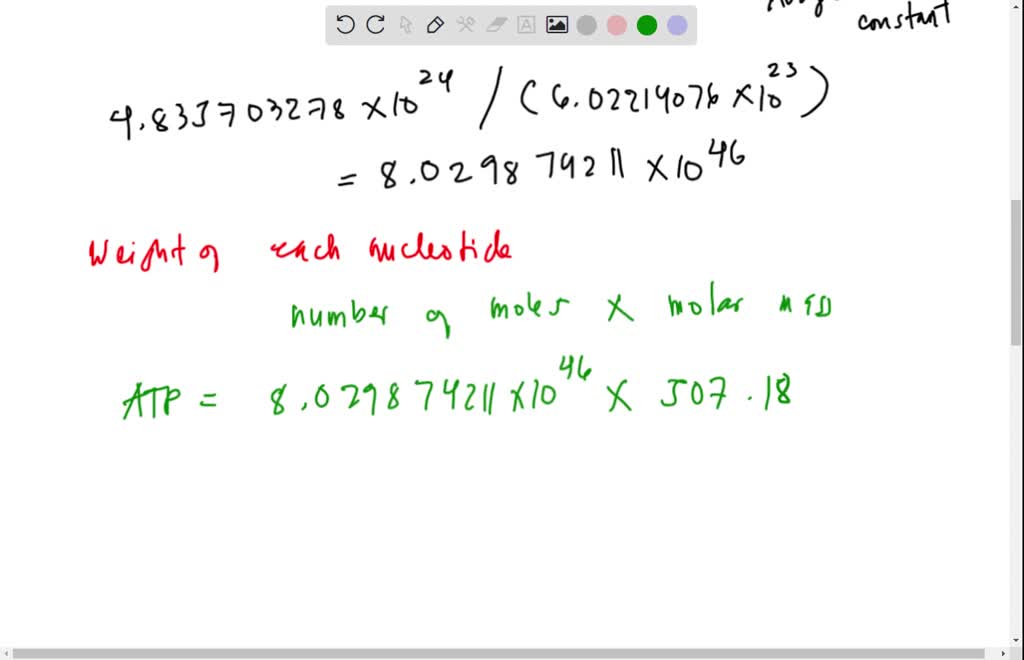 constant
4.833703278 × 10^24 / (6.02214076 × 10^23)
= 8.029879211 × 10^46
Weight of each nucleotide
number of moles × molar
ATP = 8.029874211 × 10^46 × 507.18